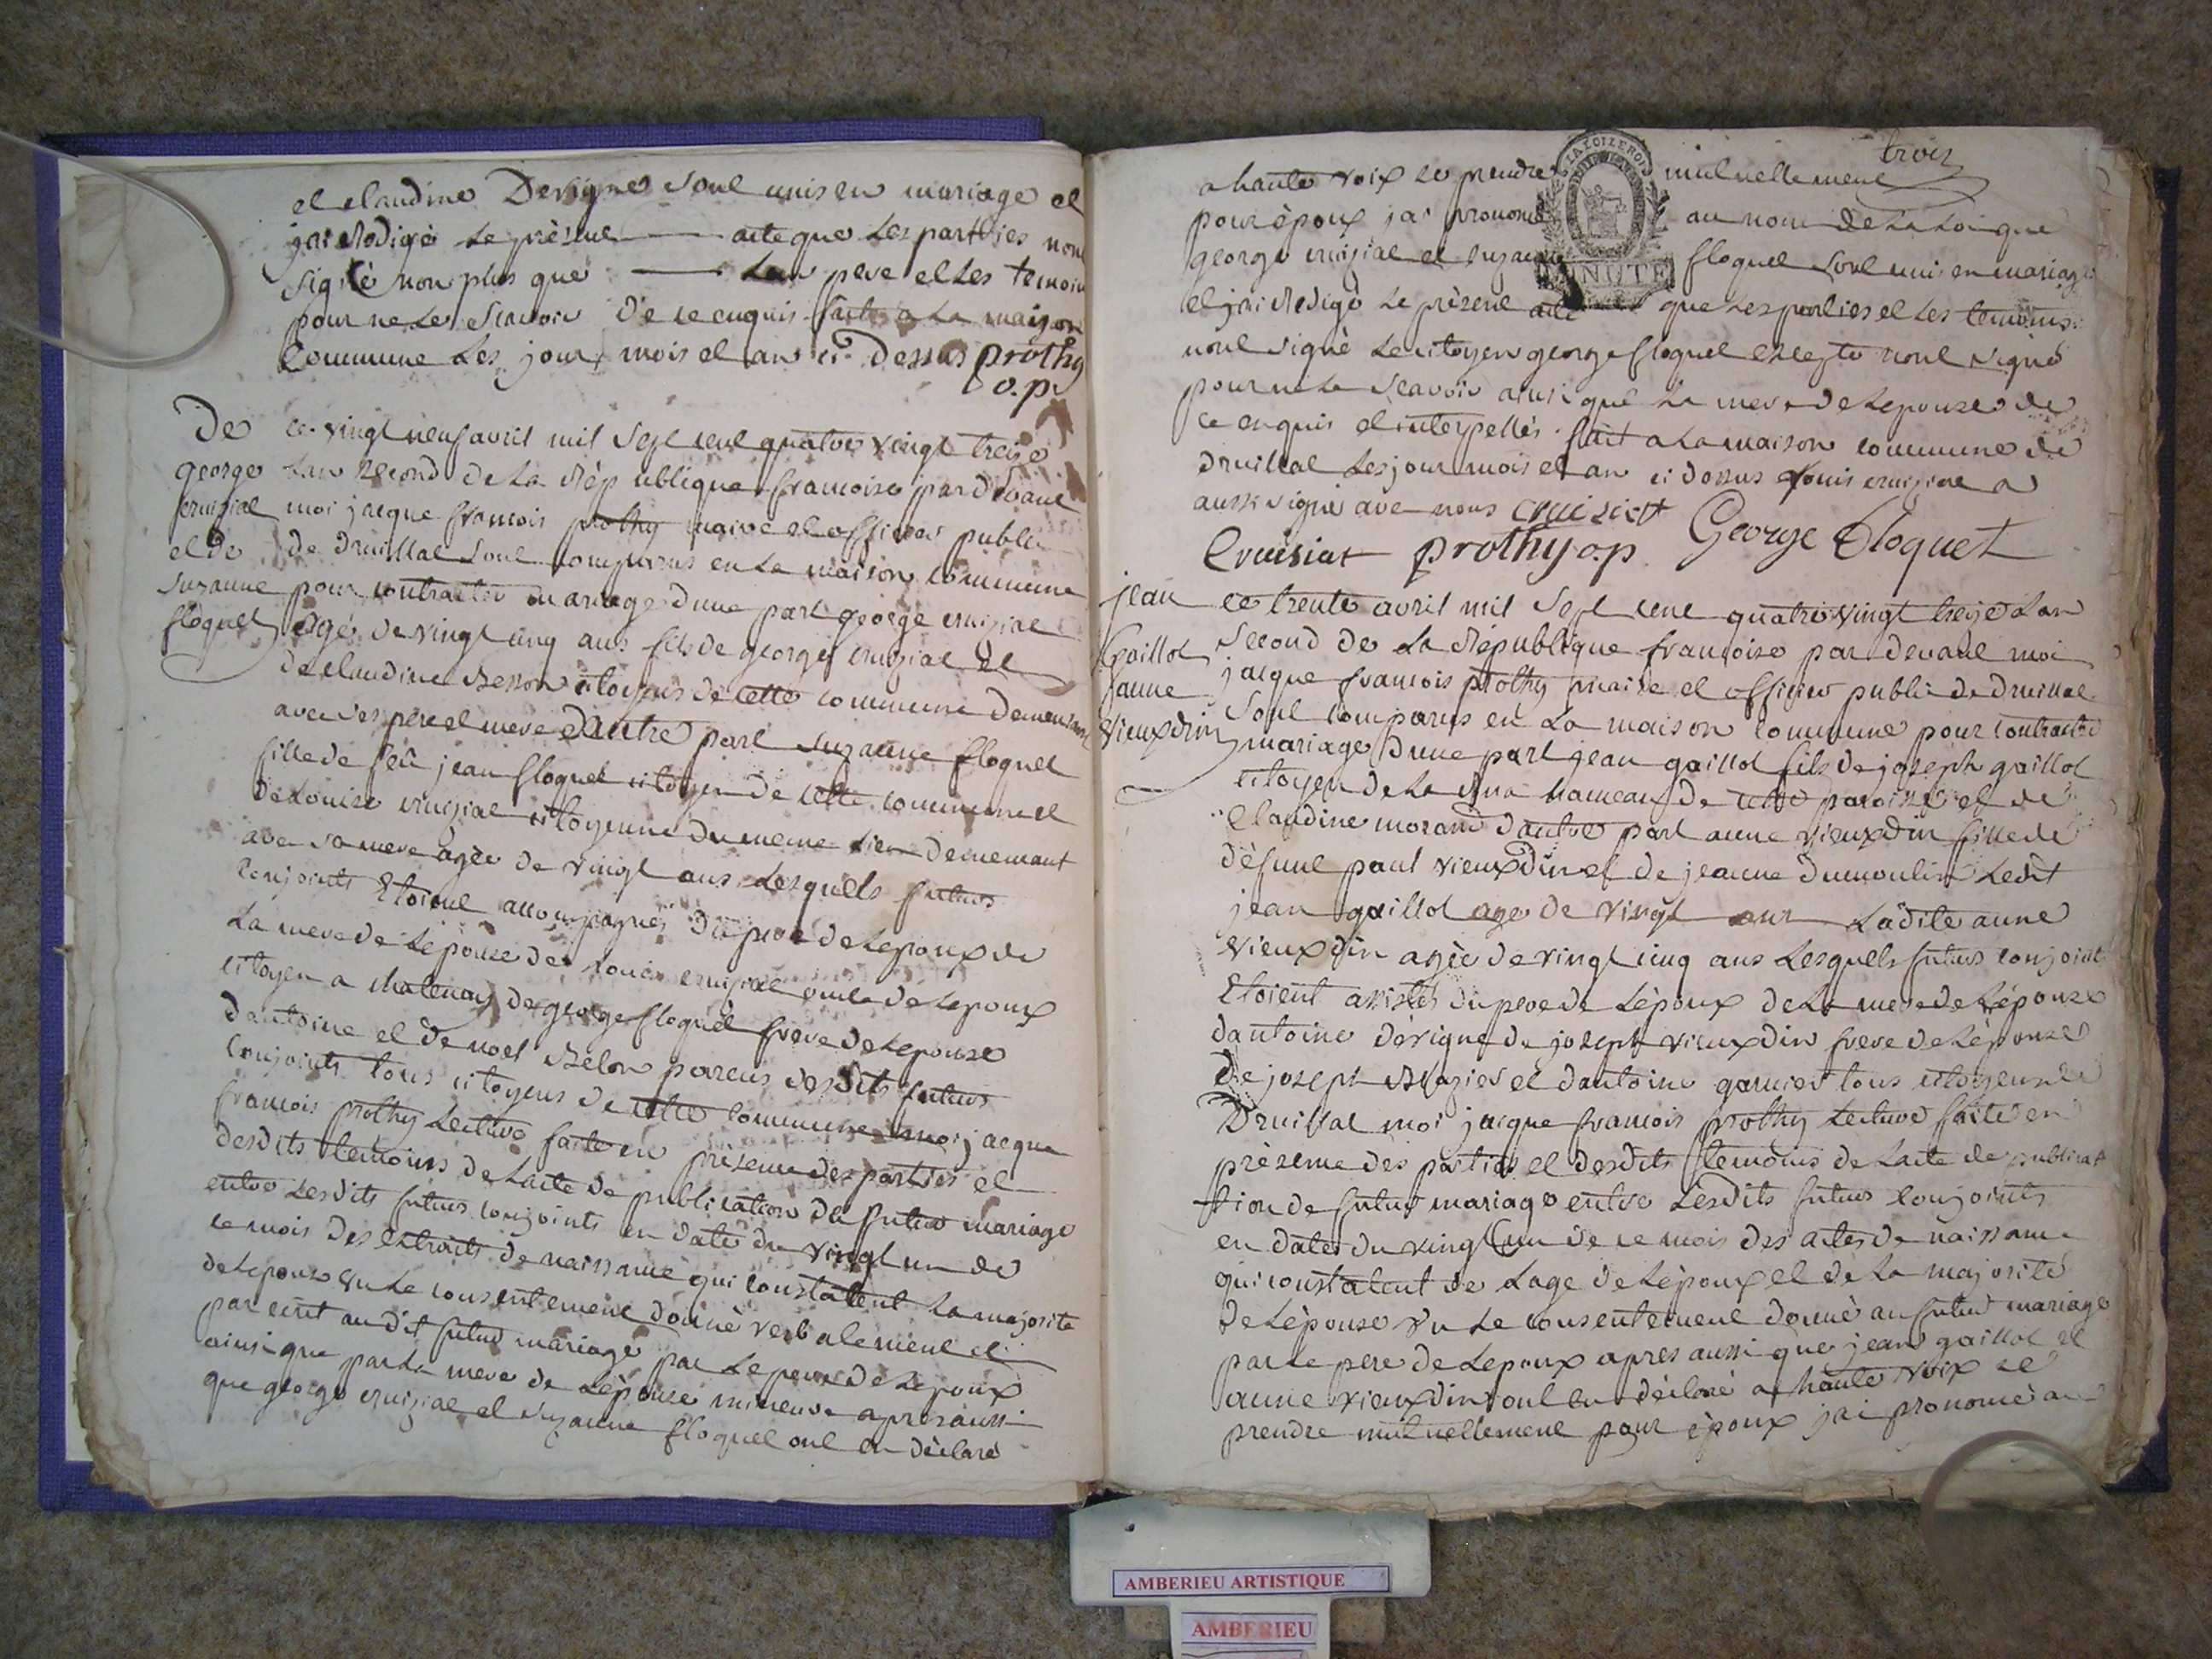 et claudine Derigne sont unis en mariage et
jai Redigé le présent acte que les parties nont
signé non plus que leur pere et les temoins
pour ne le scavoir de ce enquis fait a la maison
Commune les jour, mois et an ci Dessus prothy
o.p.
De
george
cruiziat
et de
suzanne
floquet
ce vingt neuf avril mil sept cent quatre vingt treize
lan second de la République francoise par devant
moi jacque francois prothy maire et officier public
de druillat sont comparus en la maison commune
pour contracter mariage dune part george cruiziat
agé de vingt cinq ans fils de george cruiziat et
de claudine Besson citoyens de cette commune demeurant
avec ses pere et mere dautre part suzanne floquet
fille de feû jean floquet citoyen de cette commune et
de Louise cruiziat citoyenne du meme lieu demeurant
avec sa mere agée de vingt ans, lesquells futurs
Conjoints Etoient accompagnés du pere de lepoux de
la mere de lépouse de louis cruiziat oncle de lepoux
citoyen a chatenay de george floquet frere de lepouse
dantoine et de noel Bélon parens desdits futurs
Conjoints tous citoyens de cette commune moi jacque
francois prothy lecture faite en présence des parties et
desdits temoins de lacte de publication du futur mariage
entre lesdits futurs conjoints en date du vingt un de
ce mois des extraits de naissance qui constatent la majorité
de lepoux vu le consentement donné verbalement et
par écrit au dit futur mariage par le pere de lepoux
ainsi que par la mere de lépouse mineure apres aussi
que george cruiziat et suzanne floquet ont eu déclaré
trois
a haute voix se prendre mutuellement
pour époux jai prononcé au nom de la loi que
george cruiziat et suzanne floquet sont unis en mariage
et jai Redigé le présent acte que les parties et les temoins
LA LOI LE ROI
MINUTE
nont signé le citoyen george floquet excepté nont signé
pour ne le scavoir ainsi que la mere de lepouse de
ce enquis et interpellés. fait a la maison commune de
druillat les jour mois et an ci dessus louis cruiziat a
aussi signé avec nous cruiziat George floquet
Cruisiat prothy o.p
jean
Gaillot
anne
vieuxdin
ce trente avril mil sept cent quatre vingt treize lan
second de la République francoise par devant moi
jacque francois prothy maire et officier public de druillat
sont comparus en la maison commune pour contracter
mariage dune part jean gaillot fils de joseph gaillot
citoyen de la hameau de cette paroisse et de
claudine morand dautre part anne vieuxdin fille de
défunt paul vieuxdin et de jeanne dumoulin ledit
jean gaillot agé de vingt ans ladite anne
vieuxdin agée de vingt cinq ans lesquells futurs conjoint
Etoient assistés du pere de lépoux de la mere de lépouse
dantoine dérigne de joseph vieuxdin frere de lépouse
de joseph Blazier et dantoine garnier tous citoyens de
Druillat moi jacque francois prothy lecture faite en
présence des parties et desdits temoins de lacte de publicat
tion de futur mariage entre lesdits futurs conjoints
en date du vingt un de ce mois des actes de naissance
qui constatent de lage de lépoux et de la majorité
de lépouse vu le consentement donné au futur mariage
par le pere de lepoux apres aussi que jean gaillot et
anne vieuxdin ont eu déclaré a haute voix se
prendre mutuellement pour époux jai prononcé au
AMBERIEU ARTISTIQUE
AMBERIEU